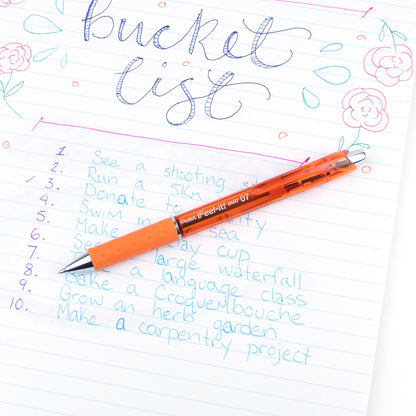 bucket
list
1. See a shooting
2. Run a 5Km
✓ 3. Donate to
4. Swim in sea
5. Make a clay cup
6. See a large waterfall
7. a language class
8. Bake a Croquembouche
9. Grow an herb garden
10. Make a carpentry project
Pentel iFeel-it! 07